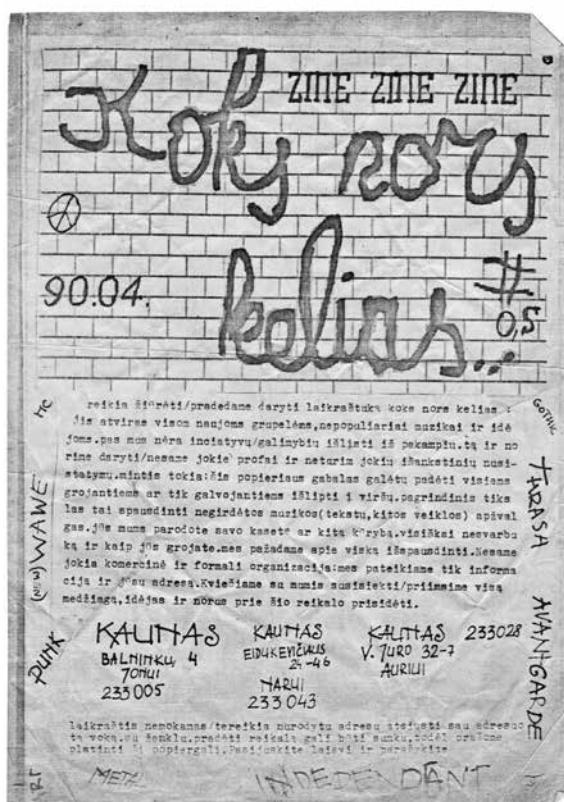 ZINE ZINE ZINE
Koks nors
kelias...
90.04.
# 0,5
reikia žiūrėti/pradedame daryti laikraštuką koks nors kelias :
jis atviras visom naujoms grupelėms,nepopuliariai muzikai ir idė
joms.pas mus nėra inciatyvų/galimybių išlįsti iš pakampių.tą ir no
rime daryti/nesame jokie profai ir neturim jokių išankstinių nusi-
statymų.mintis tokia:šis popieriaus gabalas galėtų padėti visiems
grojantiems ar tik galvojantiems išlipti į viršų.pagrindinis tiks
las tai spausdinti negirdėtos muzikos(tekstų,kitos veiklos) apžval
gas.jūs mums parodote savo kasetę ar kitą kūrybą.visiškai nesvarbu
ką ir kaip jūs grojate.mes pažadame apie viską išspausdinti.Nesame
jokia komercinė ir formali organizacija:mes pateikiame tik informa
ciją ir jūsų adresą.Kviečiame su mumis susisiekti/priimsime visą
medžiagą,idėjas ir norus prie šio reikalo prisidėti.
HC
(NEW) WAWE
PUNK
GOTHIC
THRASH
AVANTGARDE
KAUNAS
BALNINKŲ 4
JONUI
233005
KAUNAS
EIDUKEVIČIAUS
24-46
NARUI
233043
KAUNAS 233028
V. JURO 32-7
AURIUI
laikraštis nemokamas/tereikia nurodytu adresu atsiųsti sau adresuo
tą voką.su ženklu.pradėti reikalą gali būti sunku,todėl prašome
platinti šį popiergalį.Pasijuskite laisvi ir parašykite
METAL
INDEPENDANT